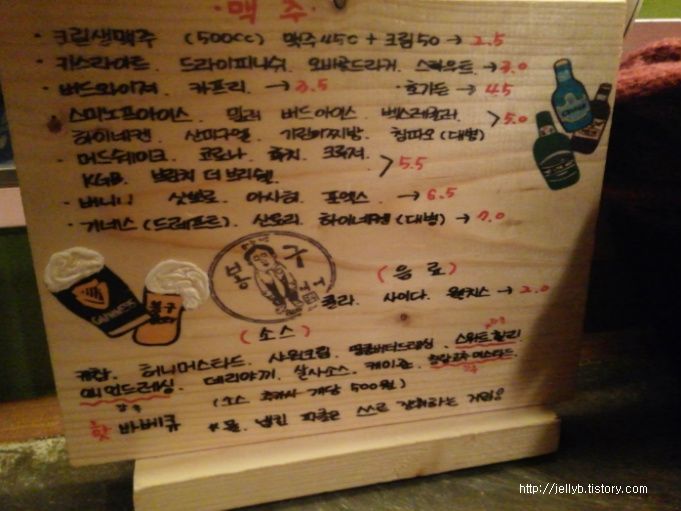 · 맥주 ·
· 크림생맥주 (500cc) 맥주450 + 크림50 → 2.5
· 카스라이트. 드라이피니쉬. 오비골든라거. 스타우트. → 3.0
· 버드와이져. 카프리. → 3.5 · 호가든 → 4.5
· 스미노프아이스. 밀러 버드아이스. 벡스레몬 > 5.0
하이네켄. 산미구엘. 기린이찌방. 칭따오 (대병)
· 머드쉐이크. 코로나. 크루져. > 5.5
KGB.
· 버니니 삿뽀로. 아사히. 포엑스. → 6.5
· 기네스 (드래프트). 산토리. 하이네켄 (대병) → 7.0
봉구
(음료)
콜라. 사이다. 웰치스 → 2.0
GUINNESS
봉구
(소스)
케찹. 허니머스타드. 사워크림. 땅콩버터드레싱. 스위트칠리
어니언드레싱. 데리야끼. 살사소스. 케이준. 머스타드
강추 (소스 추가시 개당 500원)
핫 바베큐 *물. 냅킨 쓰로 하는 거임
http://jellyb.tistory.com